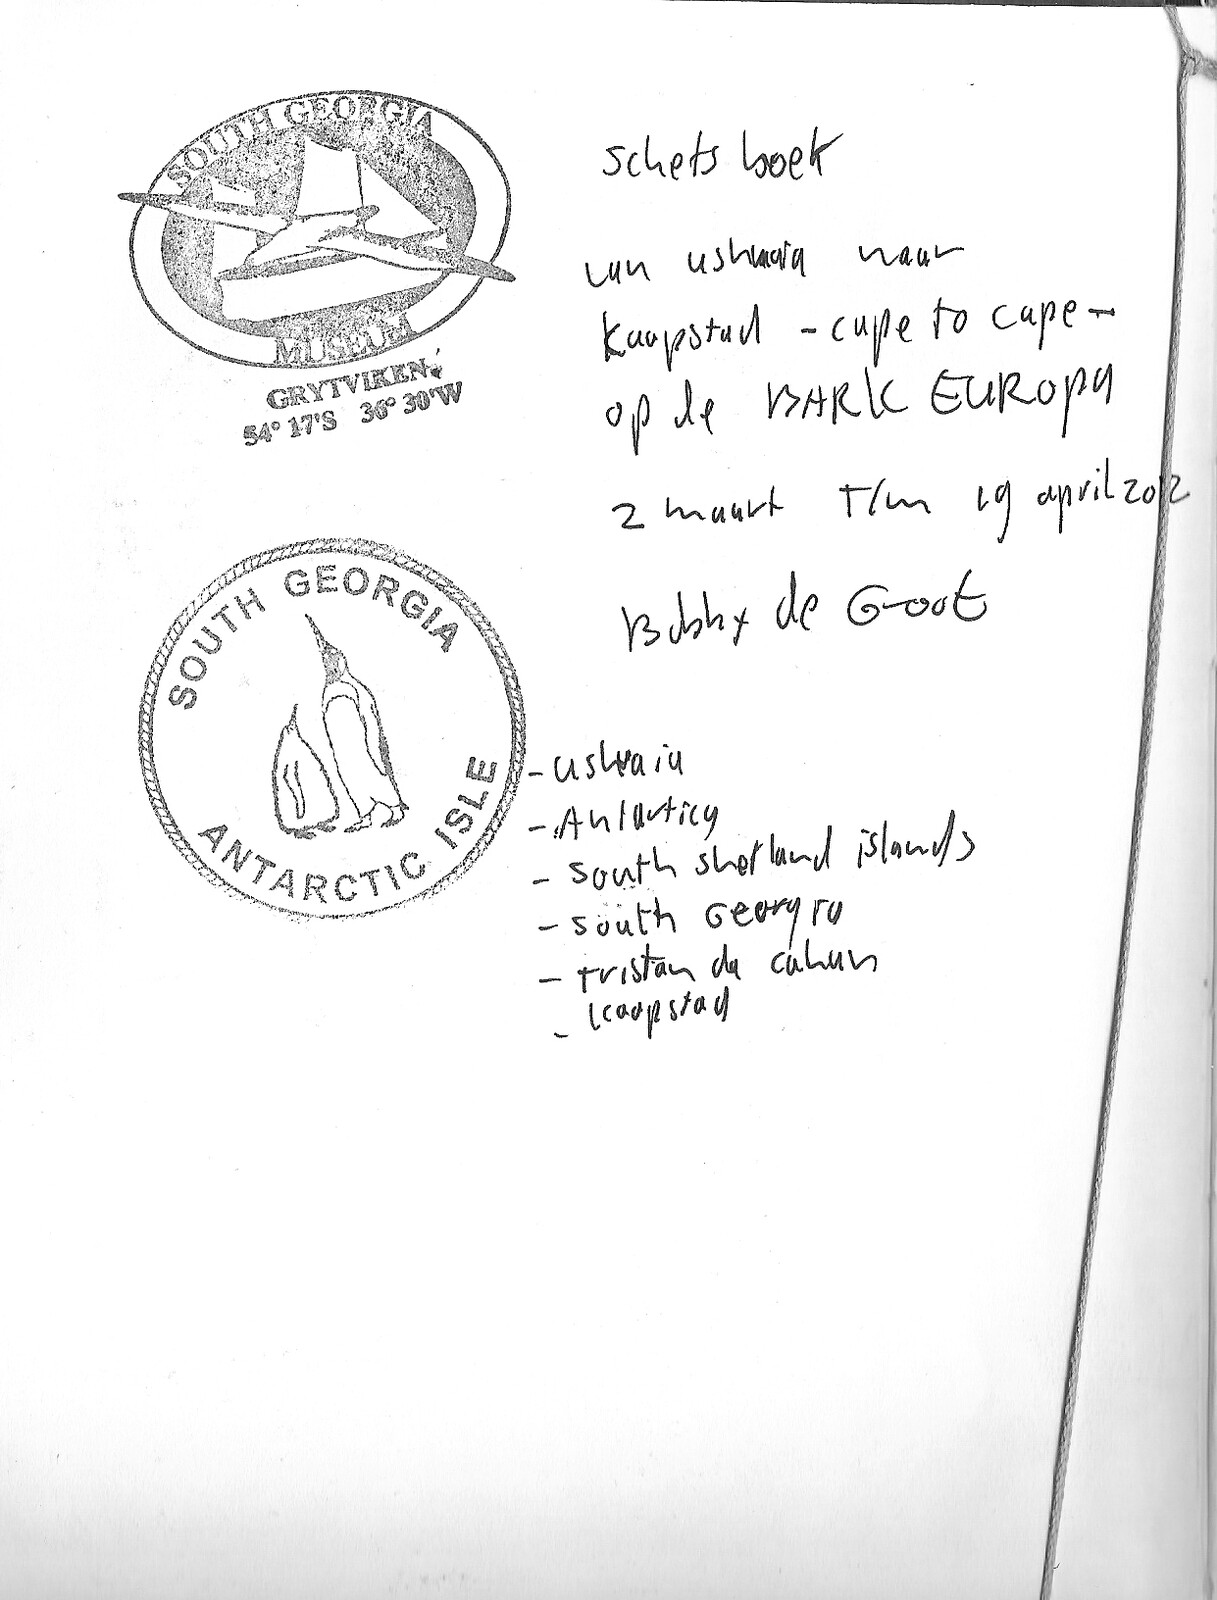 SOUTH GEORGIA
MUSEUM
GRYTVIKEN
54° 17'S 36° 30'W
schets boek
van ushuaia naar
Kaapstad - cape to cape -
op de BARK EUROPA
2 maart T/m 19 april 2012
Bobby de Groot
SOUTH GEORGIA
ANTARCTIC ISLE
- ushuaia
- Antartica
- south shetland islands
- south Georgia
- tristan da cuhun
- kaapstad